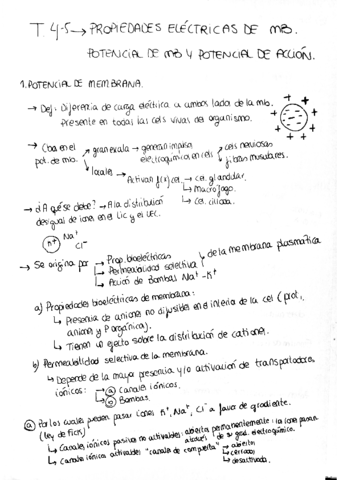 T. 4-5 → PROPIEDADES ELÉCTRICAS DE MB.
POTENCIAL DE MB Y POTENCIAL DE ACCIÓN.
1. POTENCIAL DE MEMBRANA.
→ Def: Diferencia de carga eléctrica a ambos lados de la mb.
Presente en todas las cels vivas del organismo.
→ Cba en el pot. de mb.
gran escala → generan impulsos electroquímica en cels
cels nerviosas
fibras musculares.
locales → Activan f(x) cel → cel glandular.
macrófago.
cel. ciliada.
→ ¿A qué se debe? → A la distribución
desigual de iones en el LIC y el LEC.
K+ Na+
Cl-
→ Se origina por → Prop. bioeléctricas
Permeabilidad selectiva
Acción de Bombas Na+-K+
de la membrana plasmática
a) Propiedades bioeléctricas de membrana:
↳ Presencia de aniones no difusibles en el interio de la cel (prot,
aniones y P orgánica).
↳ Tienen un efecto sobre la distribución de cationes.
b) Permeabilidad selectiva de la membrana.
↳ Depende de la mayor presencia y/o activación de transportadores
iónicos: → a Canales iónicos.
↳ b Bombas.
a Por los cuales pueden pasar iones K+, Na+, Cl- a favor de gradiente.
(Ley de Fick)
↳ Canales iónicos pasivos no activables: abierto permanentemente: los iones pasan
a través de su grad. electroquímico.
↳ Canales iónicos activables "canales de compuerta" → abierto
→ cerrado
→ desactivado.